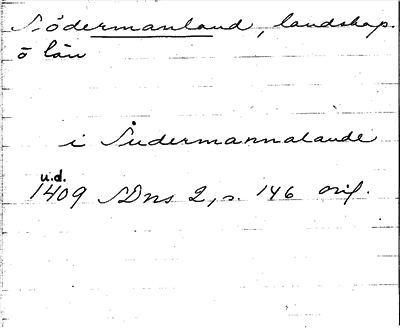 Södermanland, landskap.
o län
i Sudermannalande
u.d.
1409 SDns 2, s. 146 orig.